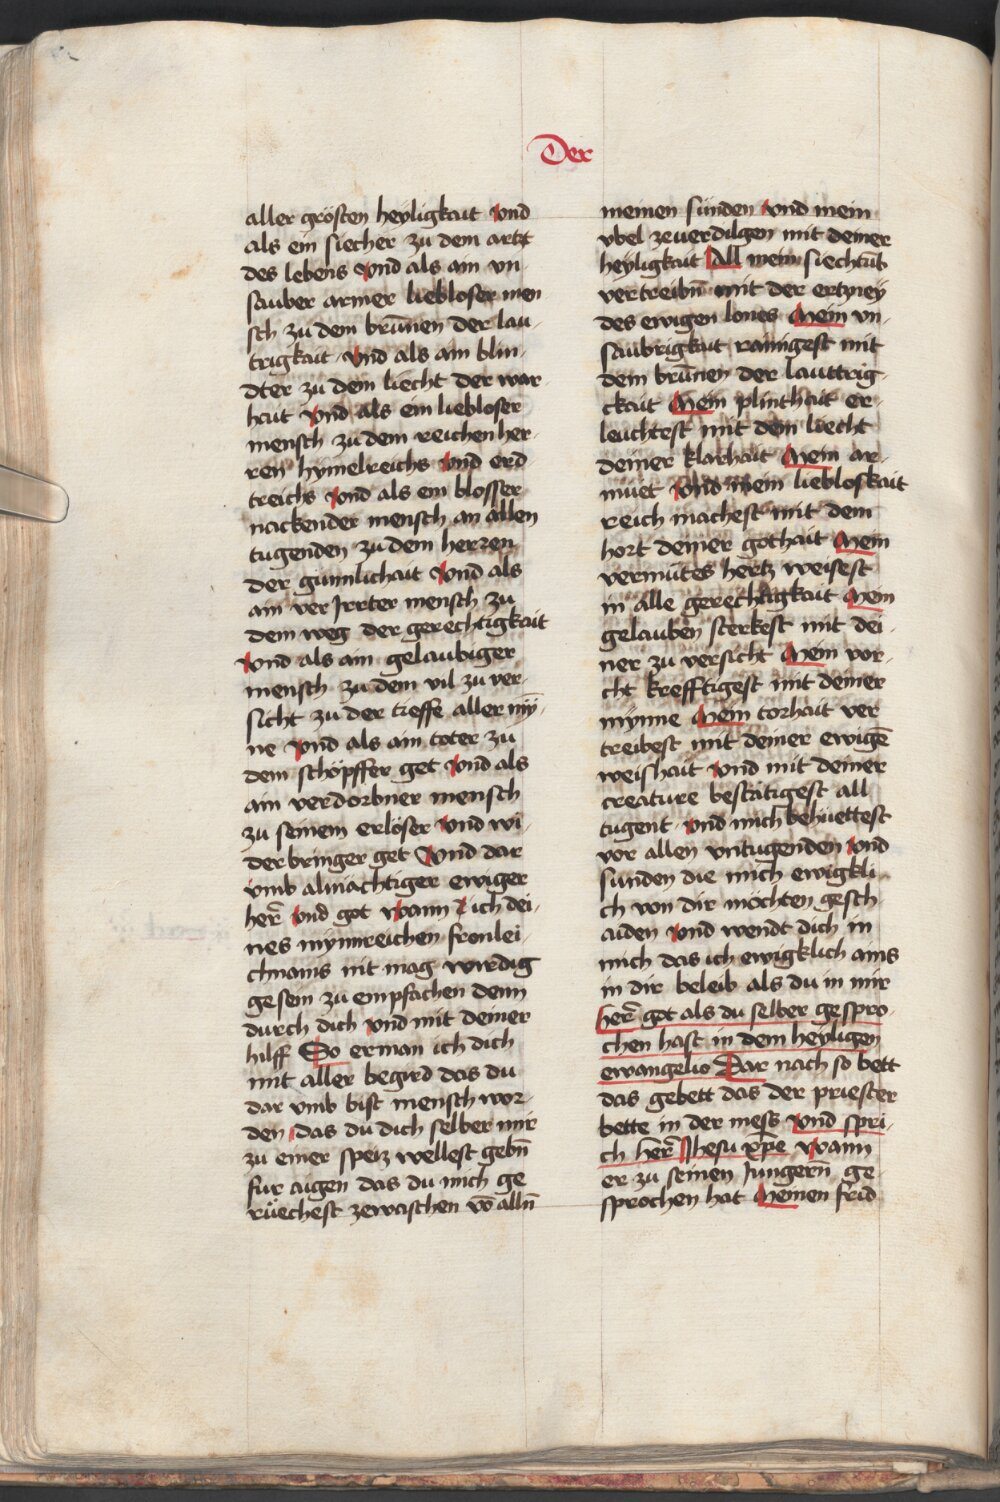 Der
aller grösten heyligkait Vnd
als ein siecher zu dem artzt
des lebens Vnd als ain vn
sauber armer liebloser men
sch zu dem brūnen der lau
trigkait Vnd als ain blin
dter zu dem liecht der war
hait Vnd als ein liebloser
mensch zu dem reichen her
ren hymelreichs Vnd erd
treichs Vnd als ein blosser
nackender mensch an allen
tugenden zu dem herren
der gunnlichait Vnd als
ain ver Jrrter mensch zu
dem weg der gerechtigkait
Vnd als ain gelaubiger
mensch zu dem vil zu ver
sicht zu der tieffe aller mȳ
ne Vnd als ain toter zu
dem schöpffer get Vnd als
ain verdorbner mensch
zu seinem erlöser Vnd wi
derbringer get Vnd dar
vmb almächtiger ewiger
her̄ Vnd got Wann ich dei
nes mynnreichen fronlei
chnams nit mag wirdig
gesein zu empfachen denn
durch dich Vnd mit deiner
hilff So erman ich dich
mit aller begird das du
dar vmb bist mensch wor
den das du dich selber mir
zu einer speiz wellest gebn̄
fur augen das du mich ge
rüechest zewaschen vō alln̄
meinen sünden Vnd mein
vbel zeuerdilgen mit deiner
heyligkait All mein siechtūb
vertreibn̄ mit der ertzney
des ewigen lones Mein vn
saubrigkait rainigest mit
dem brūnen der lauttrig
ckait Mein plinthait er
leuchtest mit dem liecht
deiner klarhait Mein ar
müet Vnd mein liebloskait
reich machest mit dem
hort deiner gothait Mein
vermütes hertz weisest
in alle gerechtigkait Mein
gelauben sterkest mit dei
ner zu versicht Mein vor
cht krefftigest mit deiner
mynne Mein torhait ver
treibest mit deiner ewigē
weishait Vnd mit deiner
creature bestätigest all
tugent Vnd mich behüettest
vor allen vntugenden Vnd
sunden die mich ewigkli
ch von dir möchten gesch
aiden Vnd wendt dich in
mich das ich ewigklich ains
in dir beleib als du in mir
her̄ got als du selber gespro
chen hast in dem heyligen
ewangelio Dar nach so bett
das gebett das der priester
bette in der mess Vnd spri
ch her̄ Jhesu xp̄e Wann
er zu seinen Jungern̄ ge
sprochen hat Meinen frid